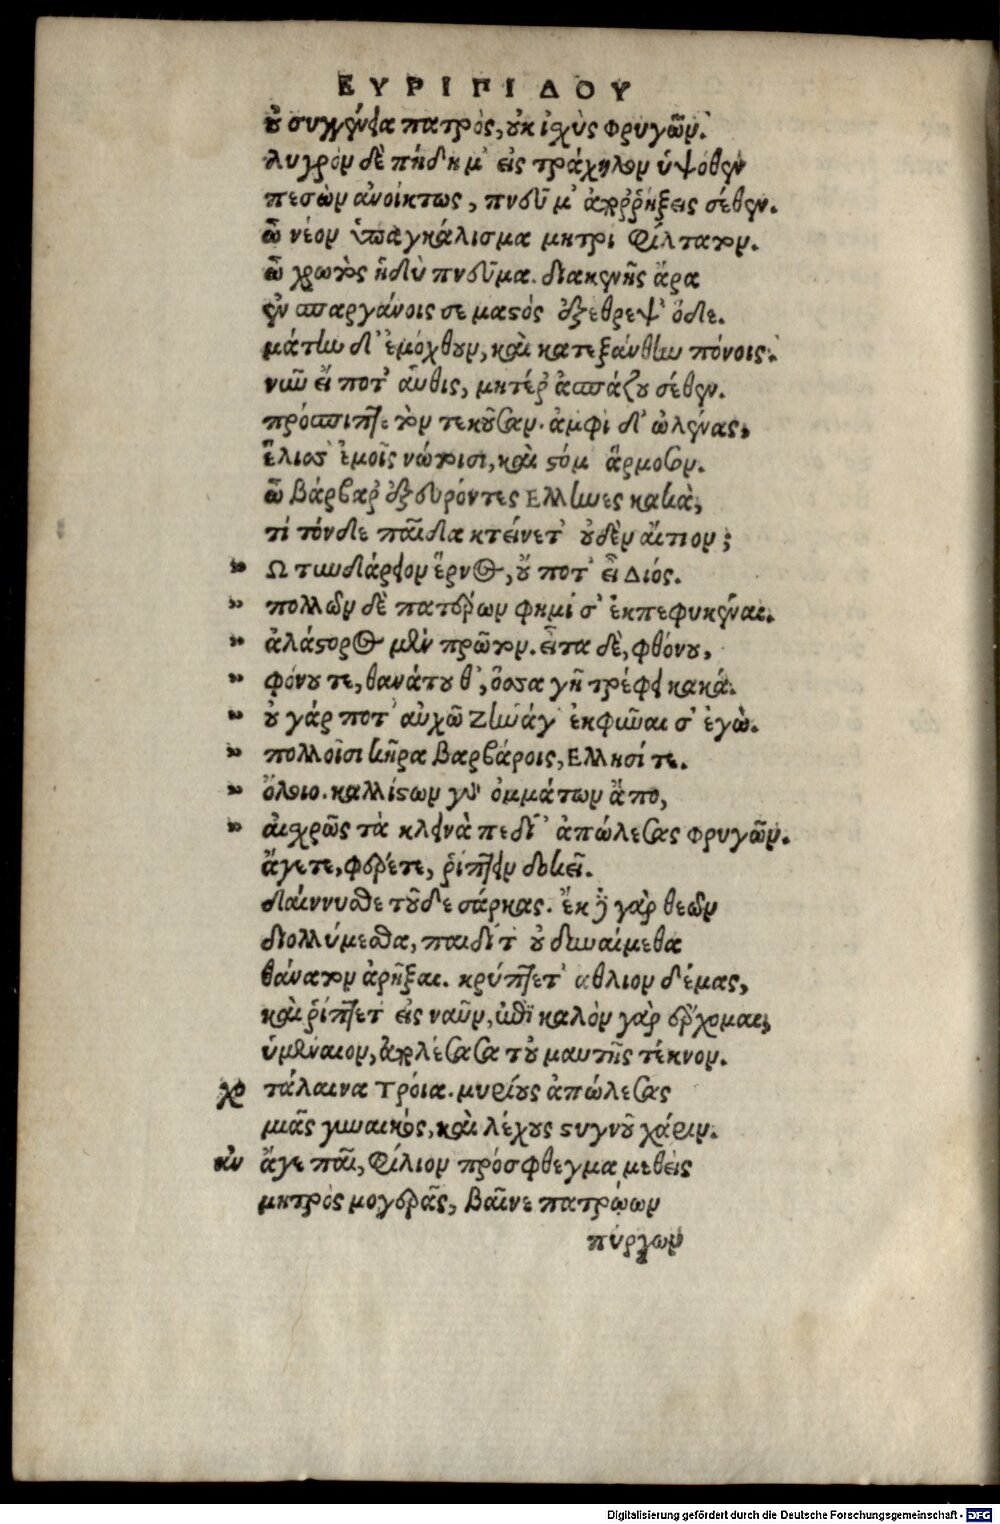 ΕΥΡΙΠΙΔΟΥ
οὐ συγγένεια πατρὸς, οὐκ ἰχὺς φρυγῶν.
λυγρὸν δὲ πήδημ' εἰς τράχηλον ὑψόθεν
πεσὼν ἀνοίκτως, πνεῦμ' ἀπορρήξεις σέθεν.
ὦ νέον ὑπαγκάλισμα μητρὶ φίλτατον.
ὦ χρωτὸς ἡδὺ πνεῦμα. διακενῆς ἄρα
ἐν σπαργάνοις σε μαστὸς ἐξέθρεψ' ὅδε.
μάτην δ' ἐμόχθουν, καὶ κατεξάνθην πόνοις.
νῦν εἴ ποτ' αὖθις, μητέρ' ἀσπάζου σέθεν.
πρόσπιπτε τὸν τεκοῦσαν. ἀμφὶ δ' ὠλένας,
ἕλισσ' ἐμοῖς νώτοισι, καὶ στόμ' ἅρμοσον.
ὦ βάρβαρ' ἐξευρόντες Ελληνες κακὰ,
τί τόνδε παῖδα κτείνετ' οὐδὲν αἴτιον;
" Ω τυνδάρειον ἔρνος, οὔ ποτ' εἶ Διός.
" πολλῶν δὲ πατέρων φημί σ' ἐκπεφυκέναι.
" ἀλάστορος μὲν πρῶτον. εἶτα δὲ, φθόνου,
" φόνου τε, θανάτου θ', ὅσα γῆ τρέφει κακά.
" οὐ γάρ ποτ' αὐχῶ Ζῆνάγ' ἐκφῦναι σ' ἐγὼ.
" πολλοῖσι κῆρα βαρβάροις, Ελλησί τε.
" ὄλοιο. καλλίστων γὰρ ὀμμάτων ἄπο,
" αἰχρῶς τὰ κλεινὰ πεδί' ἀπώλεσας φρυγῶν.
ἄγετε, φέρετε, ῥίπτειν δοκεῖ.
δαίννυσθε τοῦδε σάρκας. ἔκ τε γὰρ θεῶν
διολλύμεσθα, παιδί τ' οὐ δυναίμεθα
θάνατον ἀρῆξαι. κρύπτετ' αθλιον δέμας,
καὶ ῥίπτετ' εἰς ναῦν, ἐπὶ καλὸν γὰρ ἔρχομαι,
ὑμέναιον, ἀπολέσασα τοὐμαυτῆς τέκνον.
χο τάλαινα Τρόια. μυρίους ἀπώλεσας
μιᾶς γυναικὸς, καὶ λέχους στυγνοῦ χάριν.
ἄγε παῖ, φίλιον πρόσφθεγμα μεθεὶς
μητρὸς μογερᾶς, βαῖνε πατρῴων
πύργων